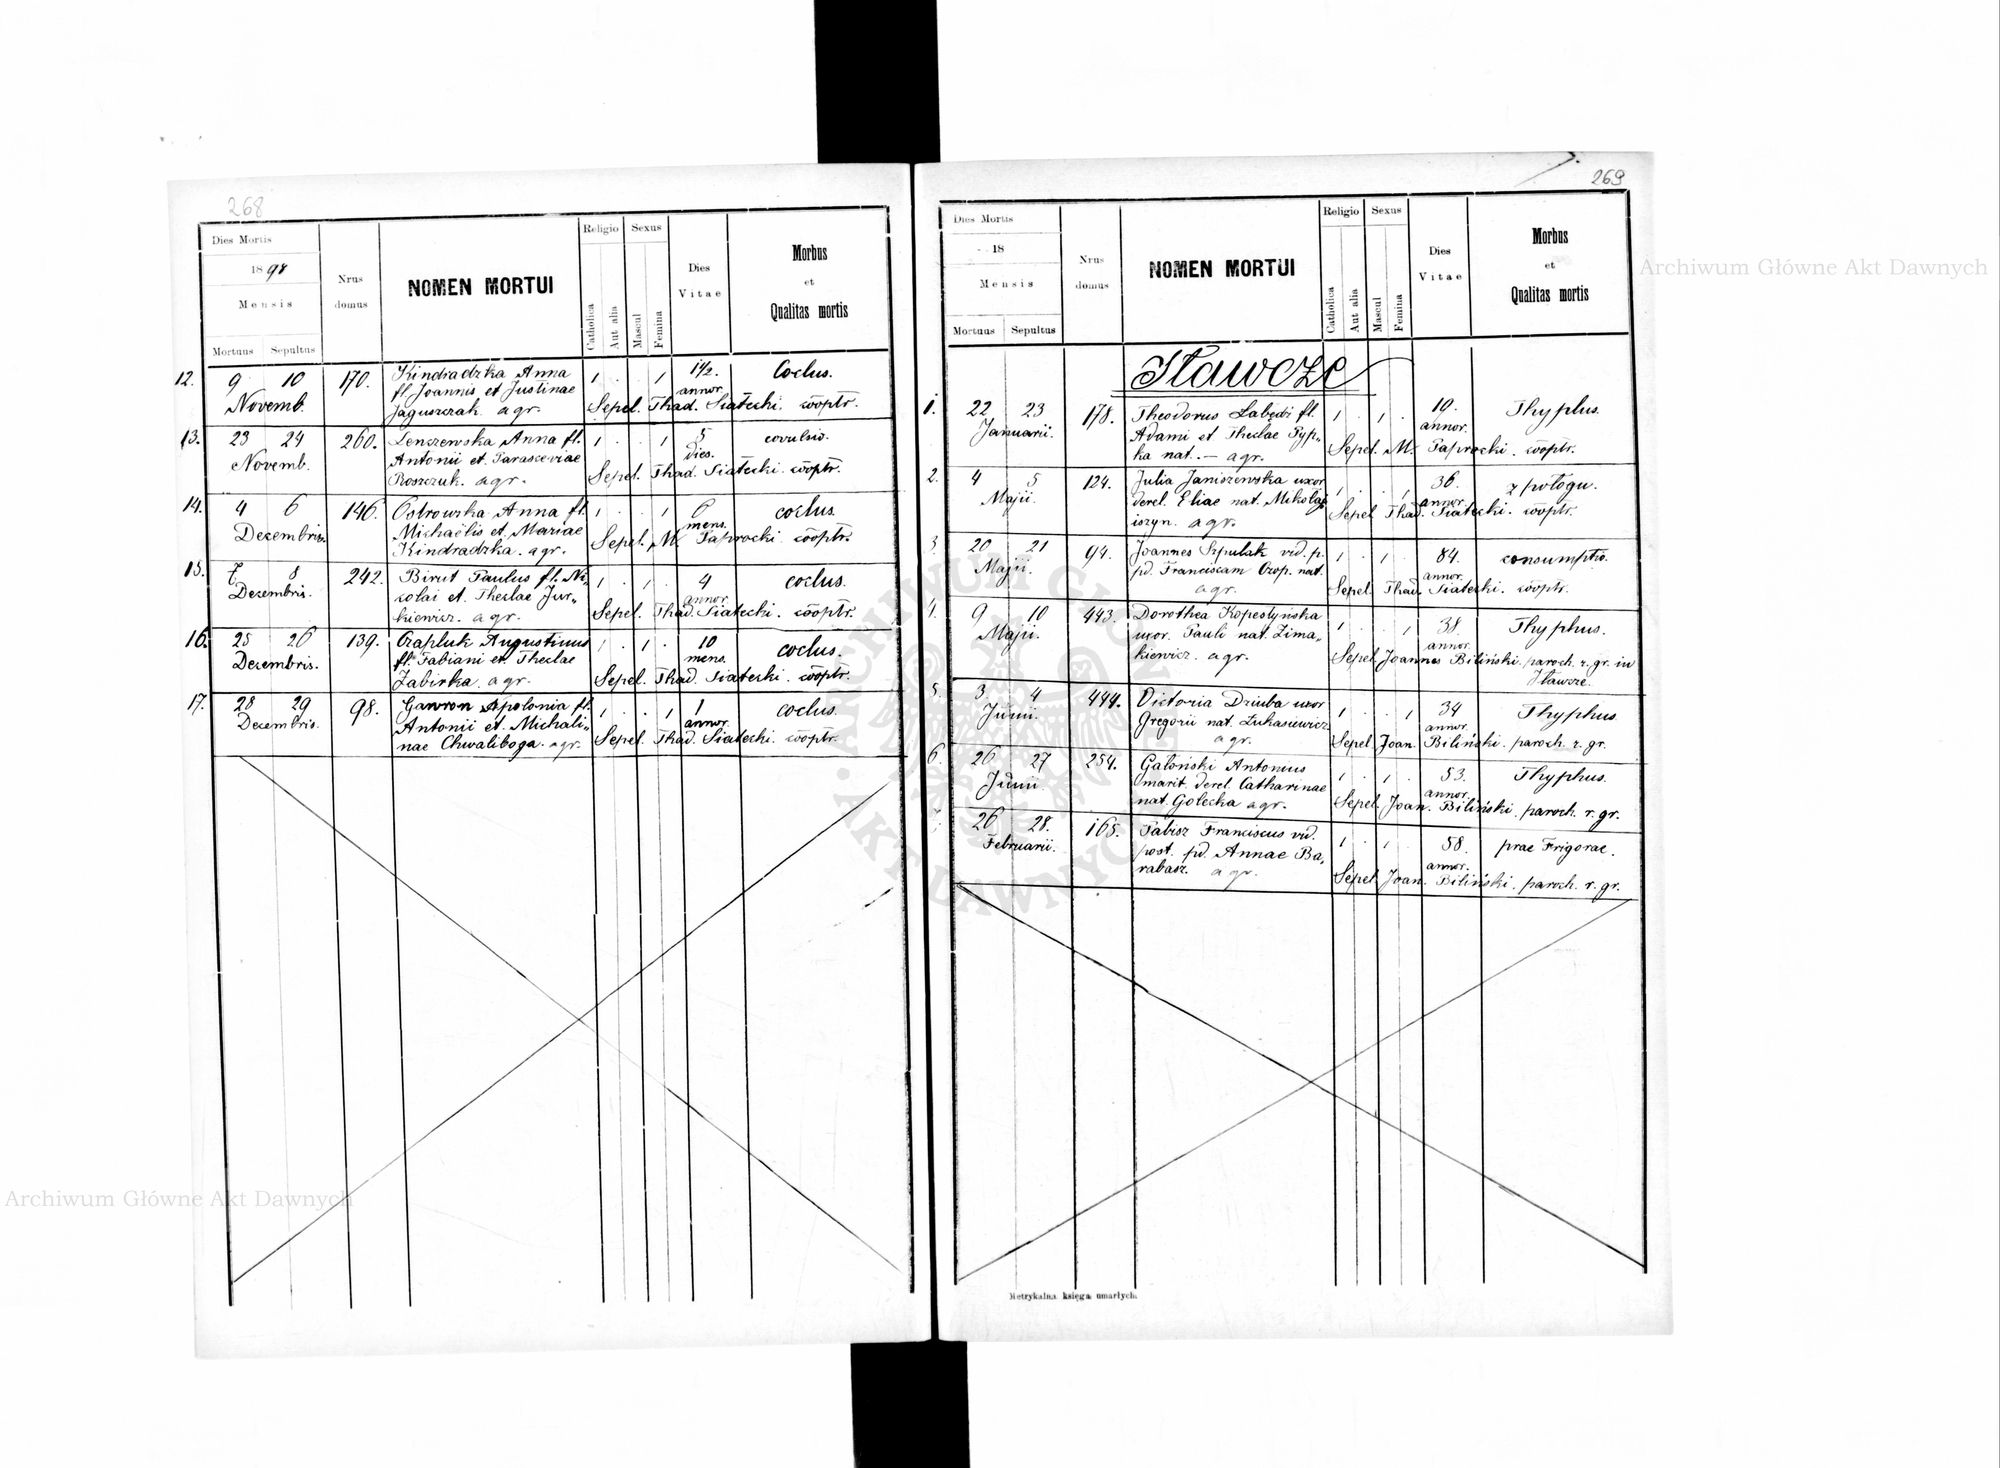 268
Dies Mortis
1898
Mensis
Mortuus Sepultus
Nrus
domus
NOMEN MORTUI
Religio
Catholica
Aut alia
Sexus
Mascul
Femina
Dies
Vitae
Morbus
et
Qualitas mortis
12. 9 10 170. Kindradzka Anna 1 . . 1 1 1/2. Coclus.
Novemb. fl. Joannis et Justinae annor.
Jaguszczak. agr. Sepel. Thad. Siatecki. cooptr.
13. 23 24 260. Lenczewska Anna fl. 1 . . 1 5 covulsio.
Novemb. Antonii et Parasceviae dies.
Roszczuk. agr. Sepel. Thad. Siatecki. cooptr.
14. 4 6 146. Ostrowska Anna fl. 1 . . 1 6 coclus.
Decembris. Michaëlis et Mariae mens.
Kindradzka. agr. Sepel. M. Paprocki. cooptr.
15. 7 8 242. Birut Paulus fl. Ni- 1 . 1 . 4 coclus.
Decembris. colai et Theclae Jur- annor.
kiewicz. agr. Sepel. Thad. Siatecki. cooptr.
16. 25 26 139. Czapluk Augustinus 1 . 1 . 10 coclus.
Decembris. fl. Fabiani et Theclae mens.
Zabirka. agr. Sepel. Thad. Siatecki. cooptr.
17. 28 29 98. Gawron Apolonia fl. 1 . . 1 1 coclus.
Decembris. Antonii et Michali- annor.
nae Chwaliboga. agr. Sepel. Thad. Siatecki. cooptr.
269
Dies Mortis
18
Mensis
Mortuus Sepultus
Nrus
domus
NOMEN MORTUI
Religio
Catholica
Aut alia
Sexus
Mascul
Femina
Dies
Vitae
Morbus
et
Qualitas mortis
Iławcze
1. 22 23 178. Theodorus Łabędź fl. 1 . 1 . 19. Thyphus.
Januarii. Adami et Theclae Pyp- annor.
ka nat. — agr. Sepel. M. Paprocki. cooptr.
2. 4 5 124. Julia Janiszewska uxor 1 . . 1 36. z połogu.
Maji. derel. Eliae nat. Mikołaj annor.
iszyn. agr. Sepel. Thad. Siatecki. cooptr.
3. 20 21 94. Joannes Szpulak vid. p. 1 . 1 . 84. consumptio.
Maji. pd. Franciscam Czop. nat. annor.
agr. Sepel. Thad. Siatecki. cooptr.
9 10 443. Dorothea Kopestyńska 1 . . 1 38. Thyphus.
Maji. uxor. Pauli nat. Zima- annor.
kiewicz. agr. Sepel. Joannes Biliński. paroch. r. gr. in
Iławcze.
5. 3 4 444. Victoria Dziuba uxor 1 . . 1 34 Thyphus.
Junii. Gregorii nat. Łukasiewicz annor.
agr. Sepel. Joan. Biliński. paroch. r. gr.
6. 26 27 254. Gałoński Antonius 1 . 1 . 53. Thyphus.
Junii marit. derel. Catharinae annor.
nat. Golecka agr. Sepel. Joan. Biliński. paroch. r. gr.
26 28. 165. Pabisz Franciscus vid. 1 . 1 . 58. prae Frigorae.
Februarii. post. pd. Annae Ba- annor.
rabasz. agr. Sepel. Joan. Biliński. paroch. r. gr.
Metrykalna księga umarłych.
Archiwum Główne Akt Dawnych
Archiwum Główne Akt Dawnych
ARCHIWUM GŁÓWNE
AKT DAWNYCH